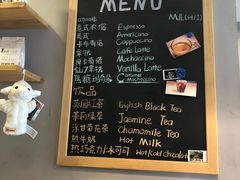 MENU
意式浓缩 Espresso
美式 Americano
卡布奇诺 Cappuccino
拿铁 Cafe Latte
摩卡 Mochaccino
香草拿铁 Vanilla Latte
Caramel Machiatto
饮品
英国红茶 English Black Tea
茉莉绿茶 Jasmine Tea
洋甘菊花茶 Chamomile Tea
热牛奶 Hot Milk
热巧克力/冰可可 Hot/cold chocolat